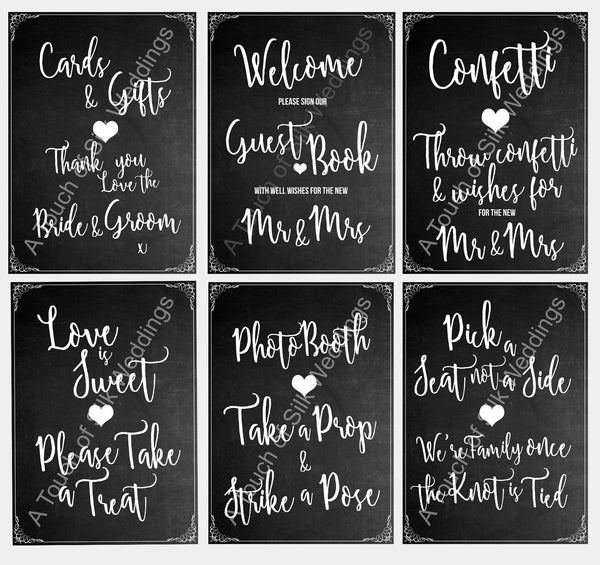 Cards
& Gifts
Thank you
Love the
Bride & Groom
xJ
A Touch of Silk Weddings
Welcome
PLEASE SIGN OUR
Guest Book
WITH WELL WISHES FOR THE NEW
Mr & Mrs
A Touch of Silk Weddings
Confetti
Throw confetti
& wishes for
FOR THE NEW
Mr & Mrs
A Touch of Silk Weddings
Love
is
Sweet
Please Take
a Treat
A Touch of Silk Weddings
PhotoBooth
Take a Prop
&
Strike a Pose
A Touch of Silk Weddings
Pick a
Seat not a Side
We're Family once
the Knot is Tied
A Touch of Silk Weddings